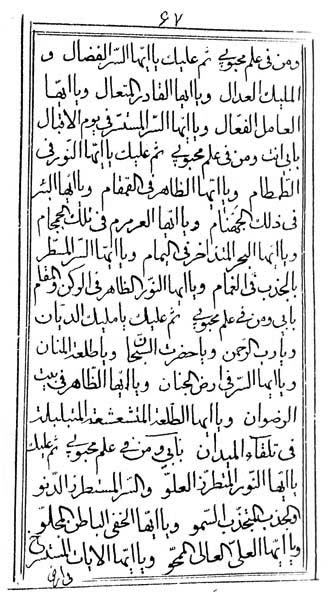 ٦٧
ومن فى علم محبوبي ثم عليك ياايها السر الفضال و
المليك العدال وياايها القادر المتعال وياايها
العامل الفعال وياايها السر المستسر فى يوم الاقبال
بابى انت ومن فى علم محبوبي ثم عليك ياايها النور فى
الطمطام وياايها الظاهر فى القمقام وياايها البئر
فى ذلك وياايها العرمرم فى تلك
وياايها البحر المتذاخر فى اليمام وياايها السر المسطر
بالجذب فى التمام وياايها النور الظاهر فى الركن والمقام
بابى ومن فى علم محبوبي ثم عليك يامليك الديان
ويارب الرحمن وياحضرت السبحان وياطلعة المنان
وياايها السر فى ارض الجنان وياايها الظاهر فى بيت
الرضوان وياايها الطلعة المتشعشعة المتبلبلة
فى تلقاء الميدان بابى ومن فى علم محبوبي ثم عليك
ياايها النور المتطرز العلو والسر المسطر الدنو
المتجذب السمو وياايها الخفى الباطن الحلو
وياايها العلى العالى المحو وياايها الايات